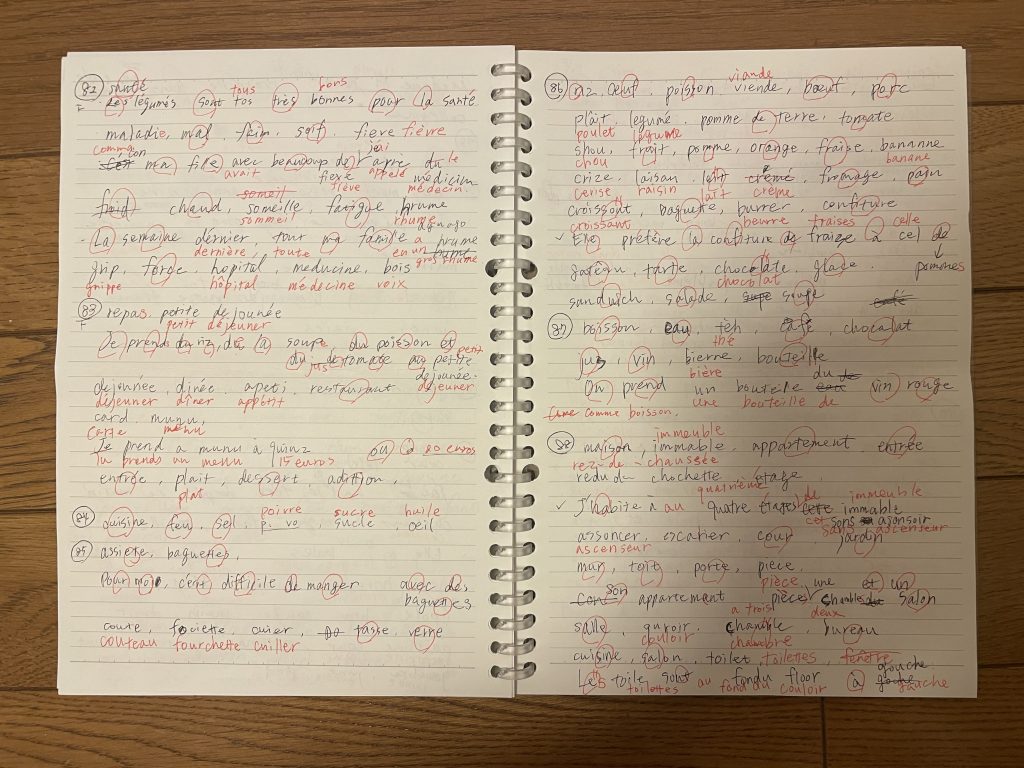 82 santé
tous bons
F Les légumés sont tos très bonnes pour la santé
maladie, mal, faim, soif, fieve fièvre
comme j'ai
mon fille avec beaucoup de l' du le
avait fieve appelé médicim
flève médecin
froid chaud, someille, fatigue, prume
someil sommeil rhume
- La semaine dérnier, tour ma famille a prume
dernière, toute en un gros rhume
grip, force, hopital, meducine, bois
grippe hôpital médecine voix
83 repas, petite dejounée
F petit déjeuner
Je prend du riz, de la soupe, du poission et
du jus de tomate au petite
petit
dejounée.
dejounée, dinée, apeti, restaurant, déjeuner
déjeuner dîner appétit
card, munu,
carte menu
Je prend a munu à quinz ou à 20 euros
tu prends un menu 15 euros
entrée, plait, dessert, adittion,
plat
poivre sucre huile
84 cuisine, feu, sel, p. vo, sucle, oeil
85 assiete, baguettes,
Pour moi, c'est difficile de manger avec des
baguettes
coute, fociette, cuier, tasse, verre
couteau fourchette cuiller
viande
86 riz, Œuf, poisson, viende, bœuf, porc
plâit, legume, pomme de terre, tomate
poulet légume
shou, fruit, pomme, orange, fraise, bananne
chou banane
crize, laisan, lait, crème, fromage, pain
cerise raisin lait crème
croissant, baguette, burrer, confiture
croissant beurre fraises celle
✓ Elle préfère la confiture de fraize à cel de
pommes
gateau, tarte, chocolate, glace.
chocolat
sandwich, salade, soupe
87 boisson, eau, teh, café, chocolat
thé
jus, vin, bierre, bouteille
bière du
On prend un bouteille vin rouge
une bouteille de
comme boisson.
immeuble
88 maison, immable, appartement, entrée
rez-de-chaussée
redude chochette étage
quatrième de immeuble
✓ J'habite à au quatre étages immable
cet sans
sans ascenseur
assoncer, escalier, cour jardin
ascenseur
mur, toit, porte, piece.
pièce
son appartement pièces une et un salon
a trois deux
salle, quroir, chamble, bureau
couloir chambre
cuisine, salon, toilet, toilettes, fenêtre
gauche
Les toile sont fondu floor à gauche
toilettes au fond du couloir